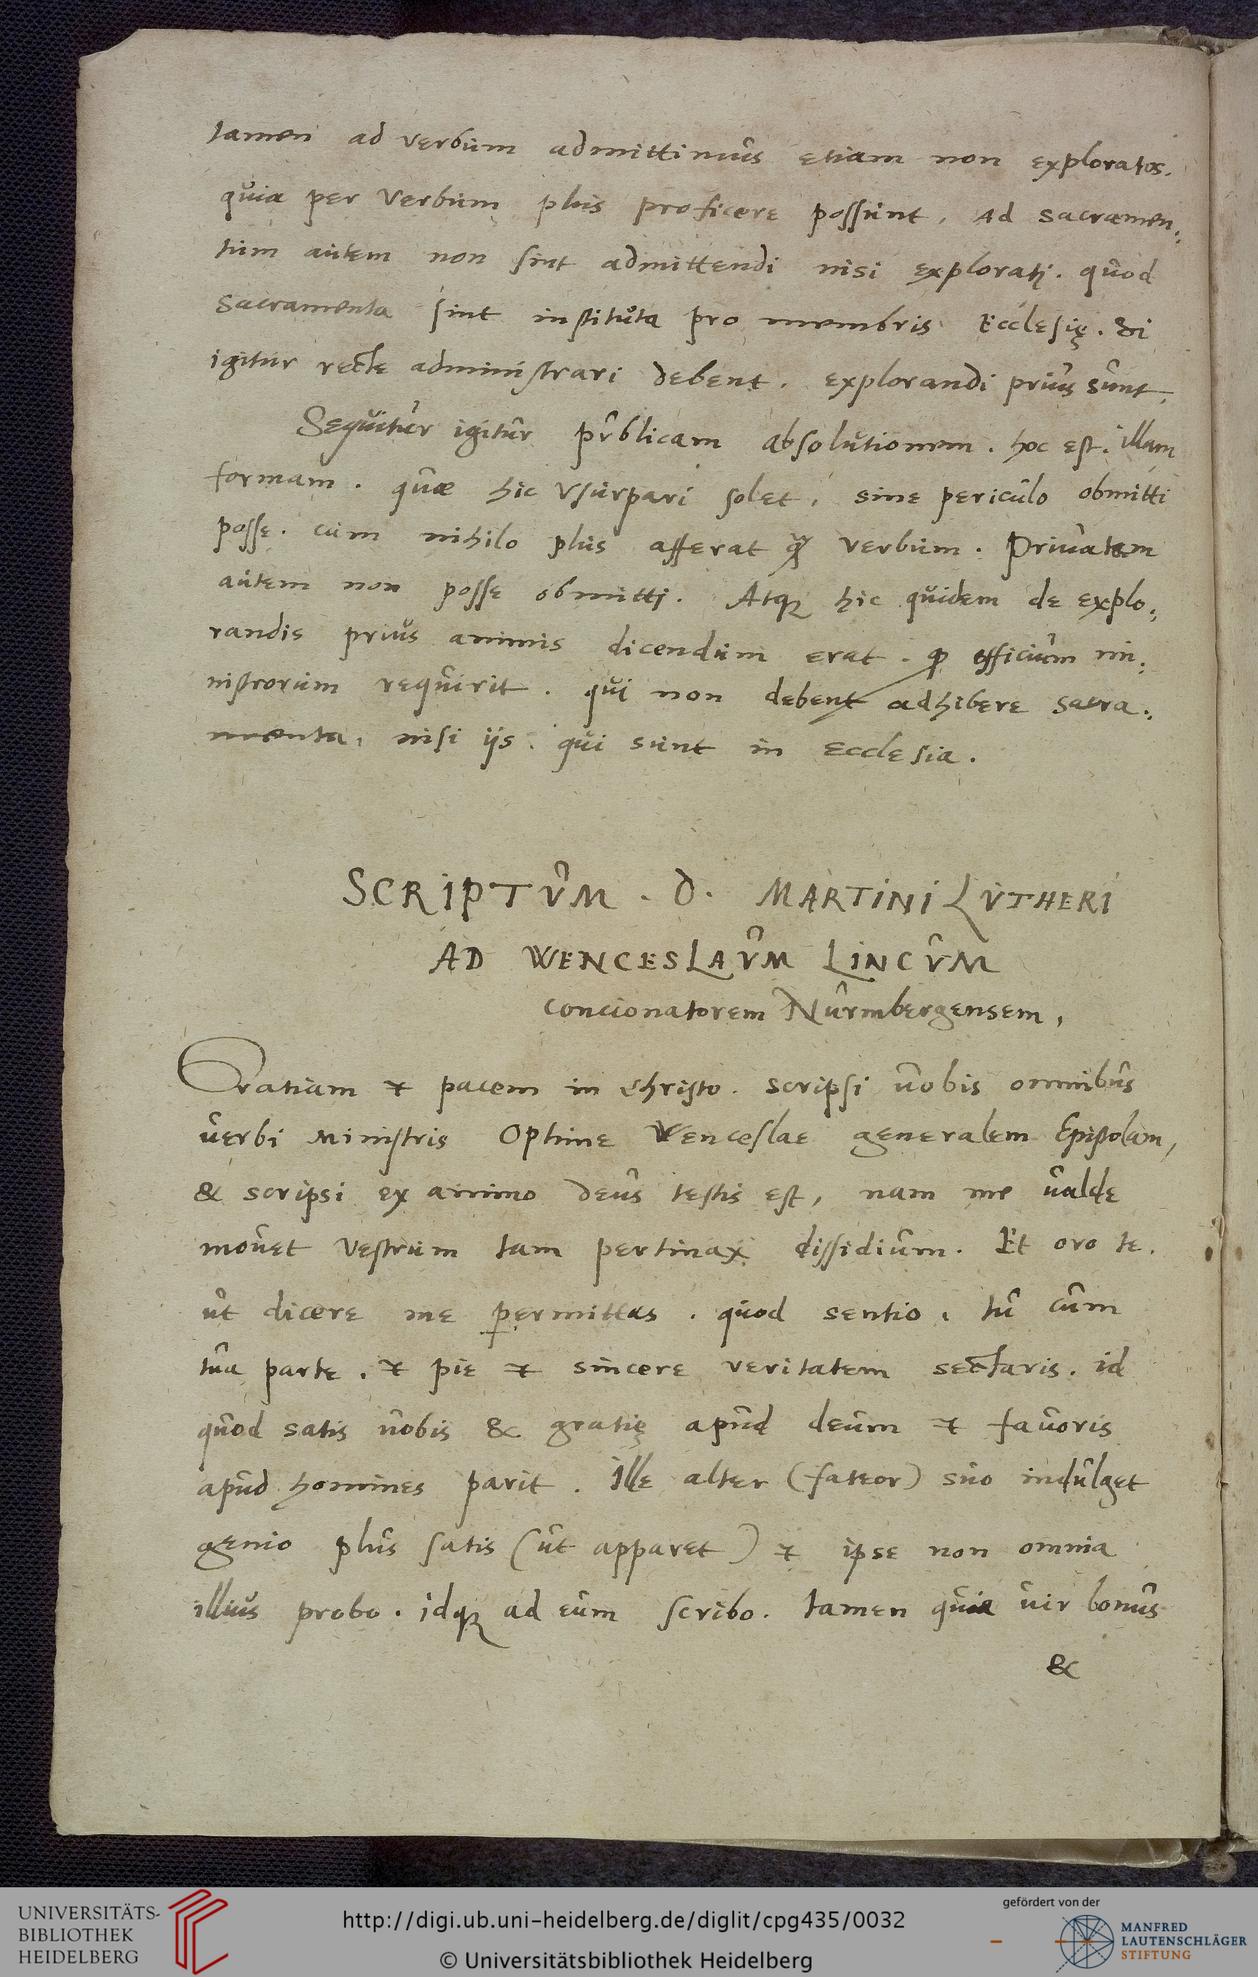 tamen ad verbum admittimus etiam non exploratos.
quia per verbum plus proficere possunt. Ad sacramen:
tum autem non sint admittendi nisi explorati. quod
sacramenta sint instituta pro membris Ecclesię. Si
igitur recte administrari debent. explorandi prius sunt.
Sequitur igitur publicam absolutionem. hoc est. illam
formam. quae hic usurpari solet, sine periculo obmitti
posse. cum nihilo plus afferat verbum. Privatam
autem non posse obmitti. Atque hic quidem de explo:
randis prius animis dicendum erat. officium mi:
nistrorum requirit. qui non debent adhibere sacra:
menta, nisi iis. qui sunt in Ecclesia.
SCRIPTUM. D. MARTINI LUTHERI
AD WENCESLAUM LINCUM
concionatorem Nurmbergensem,
Gratiam & pacem in Christo. scripsi uobis omnibus
uerbi Ministris Optime Wenceslae generalem Epistolam,
& scripsi ex animo deus testis est, nam me ualde
mouet vestrum tam pertinax dissidium. Et oro te.
ut dicere me permittas. quod sentio, tu cum
tua parte. & pie & sincere veritatem sectaris. id
quod satis uobis & gratię apud deum & fauoris
apud homines parit. Ille alter (fateor) suo indulget
genio plus satis (ut apparet) & ipse non omnia
illius probo. idque ad eum scribo. tamen quia uir bonus
&
UNIVERSITÄTS-
BIBLIOTHEK
HEIDELBERG
http://digi.ub.uni-heidelberg.de/diglit/cpg435/0032
© Universitätsbibliothek Heidelberg
gefördert von der
MANFRED
LAUTENSCHLÄGER
STIFTUNG